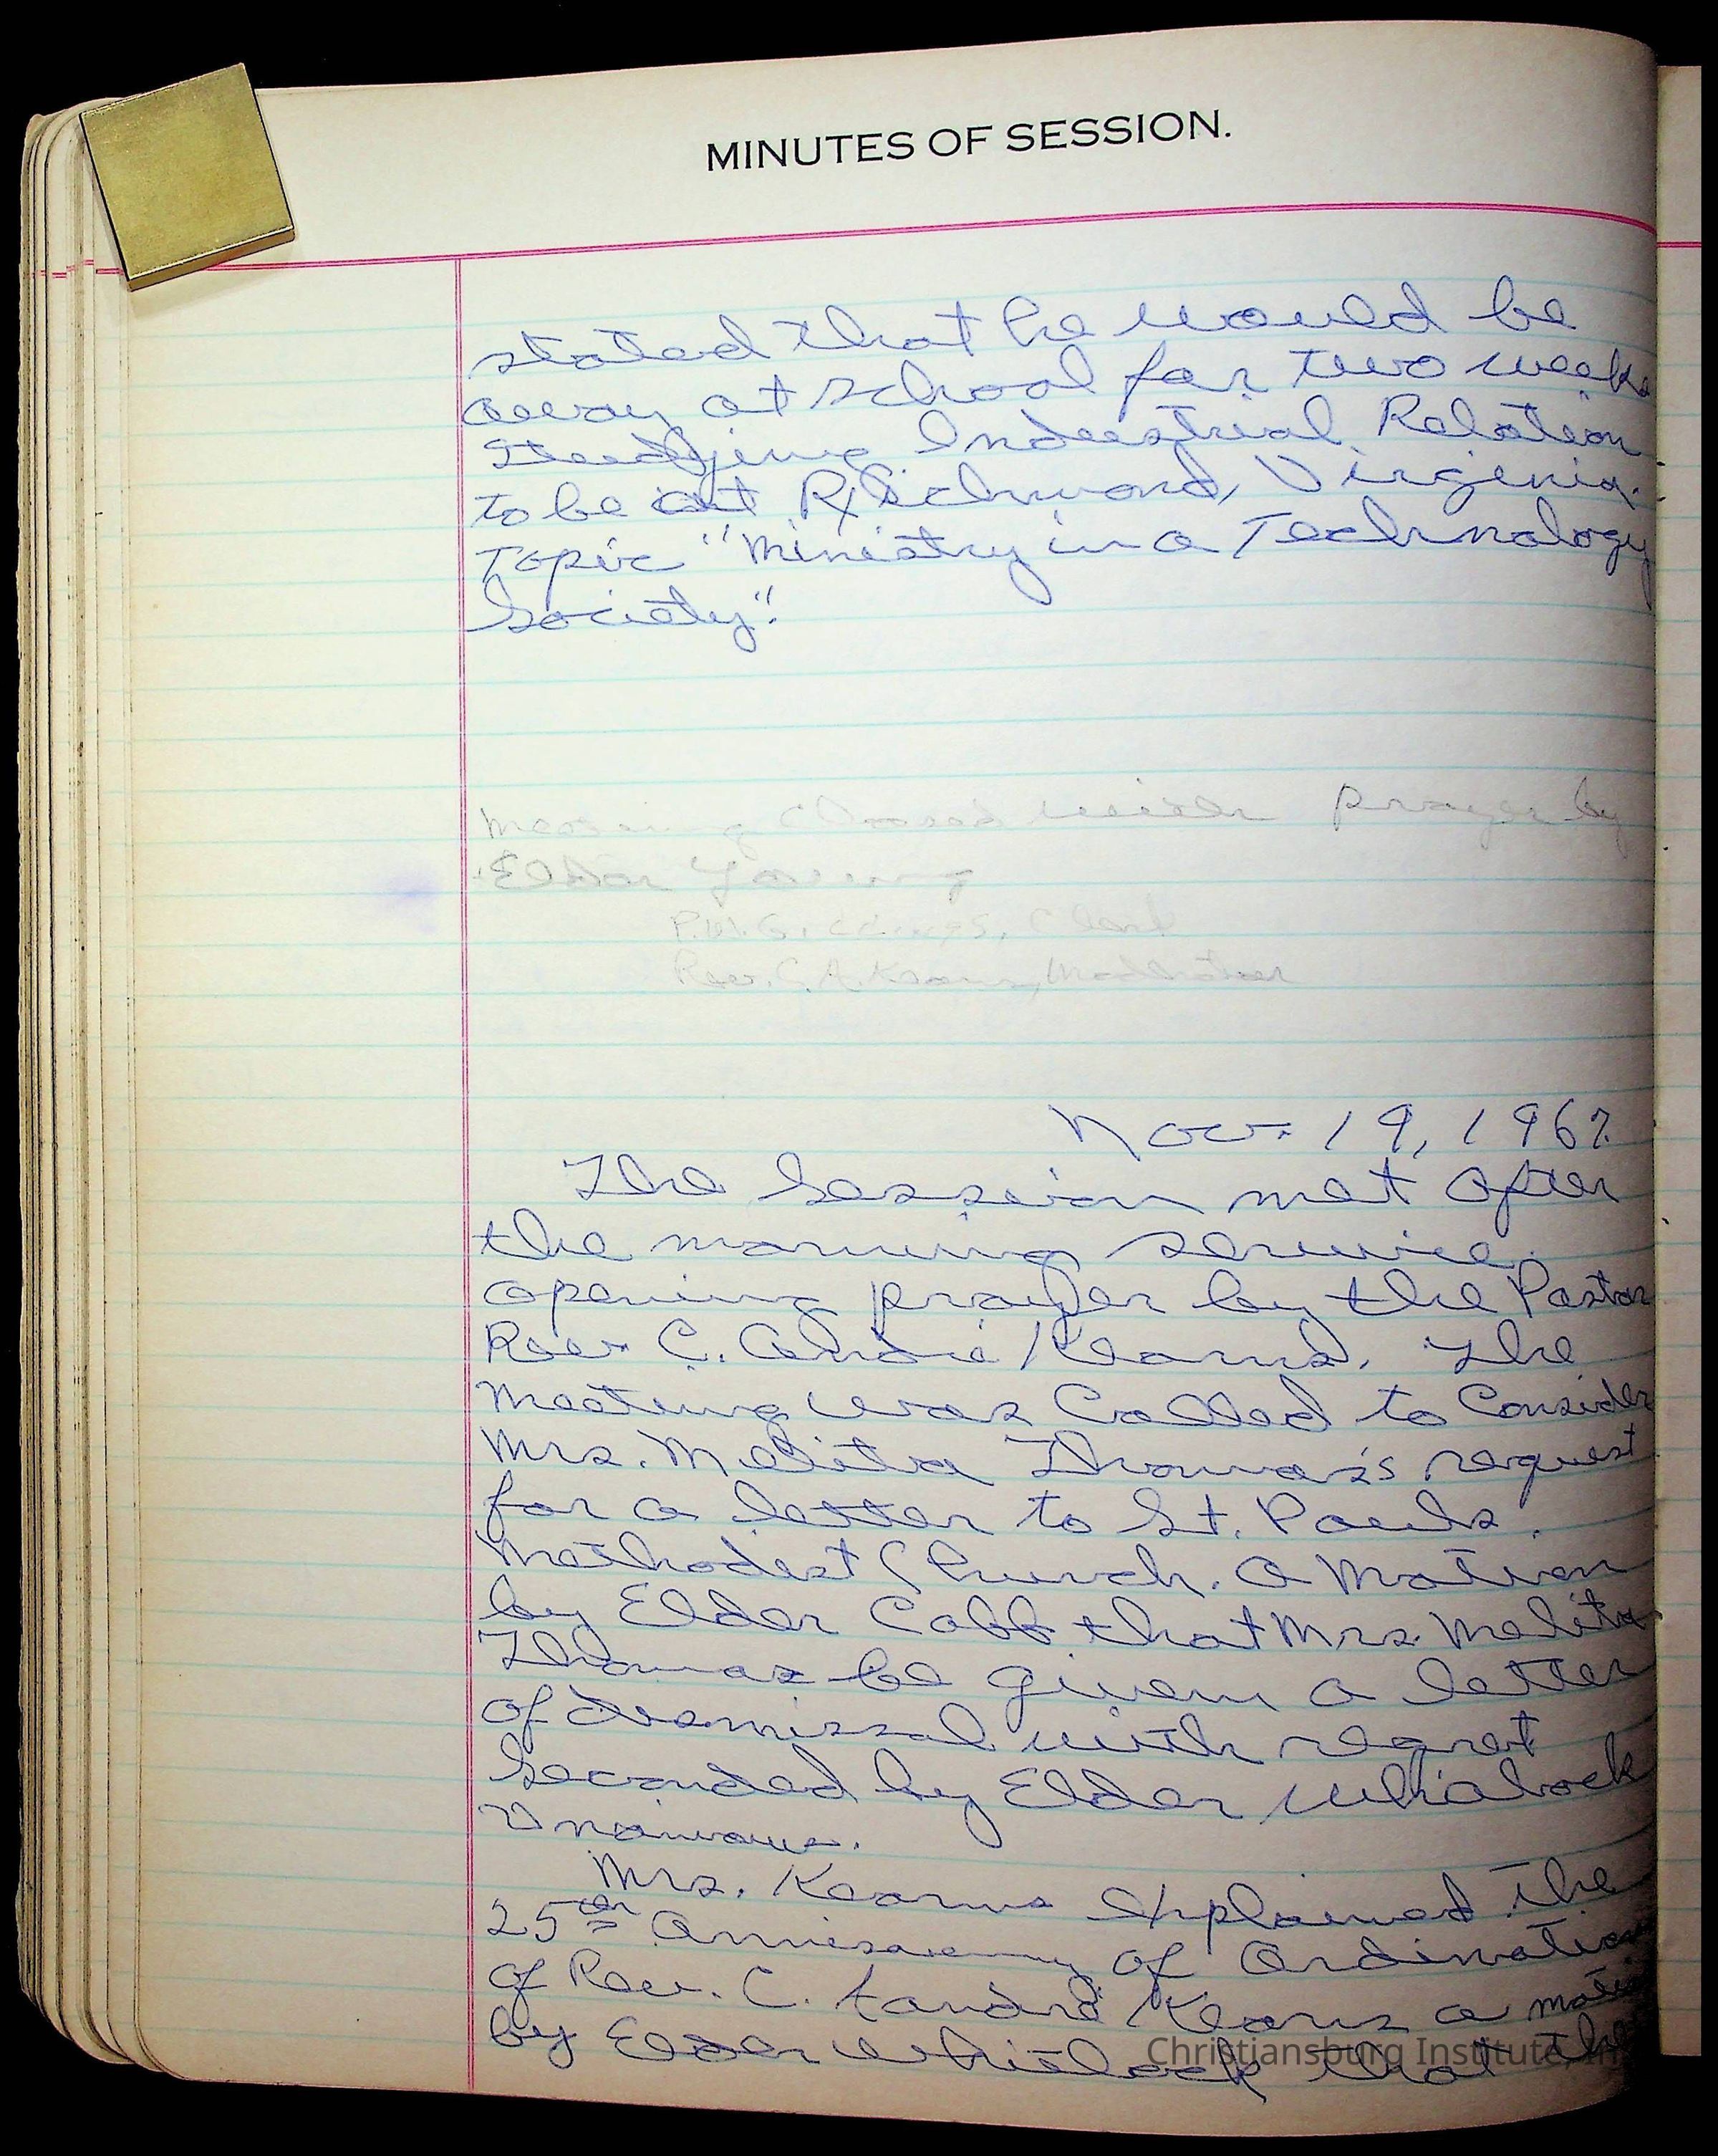 MINUTES OF SESSION.
stated that he would be
away at school for two weeks
Studying Industrial Relation
to be at Richmond, Virginia.
Topic "Ministry in a Technology
Society".
Meeting closed with prayer by
Elder Young
P.W. Giddings, Clerk
Rev. C. A. Kearns, Moderator
Nov. 19, 1967.
The Session met after
the morning service.
opening prayer by the Pastor
Rev. C. Andre Kearns. The
meeting was called to Consider
Mrs. Melitva Thomas's request
for a letter to St. Pauls.
Methodest Church. A Motion
by Elder Cobb that Mrs. Melitva
Thomas be given a letter
of dismissal with regret
Seconded by Elder Whitlock
Mrs. Kearns Explained the
25th of Ordination
of Rev. C. Kearns a motion
by Elder Whitlock that the
Christiansburg Institute, In